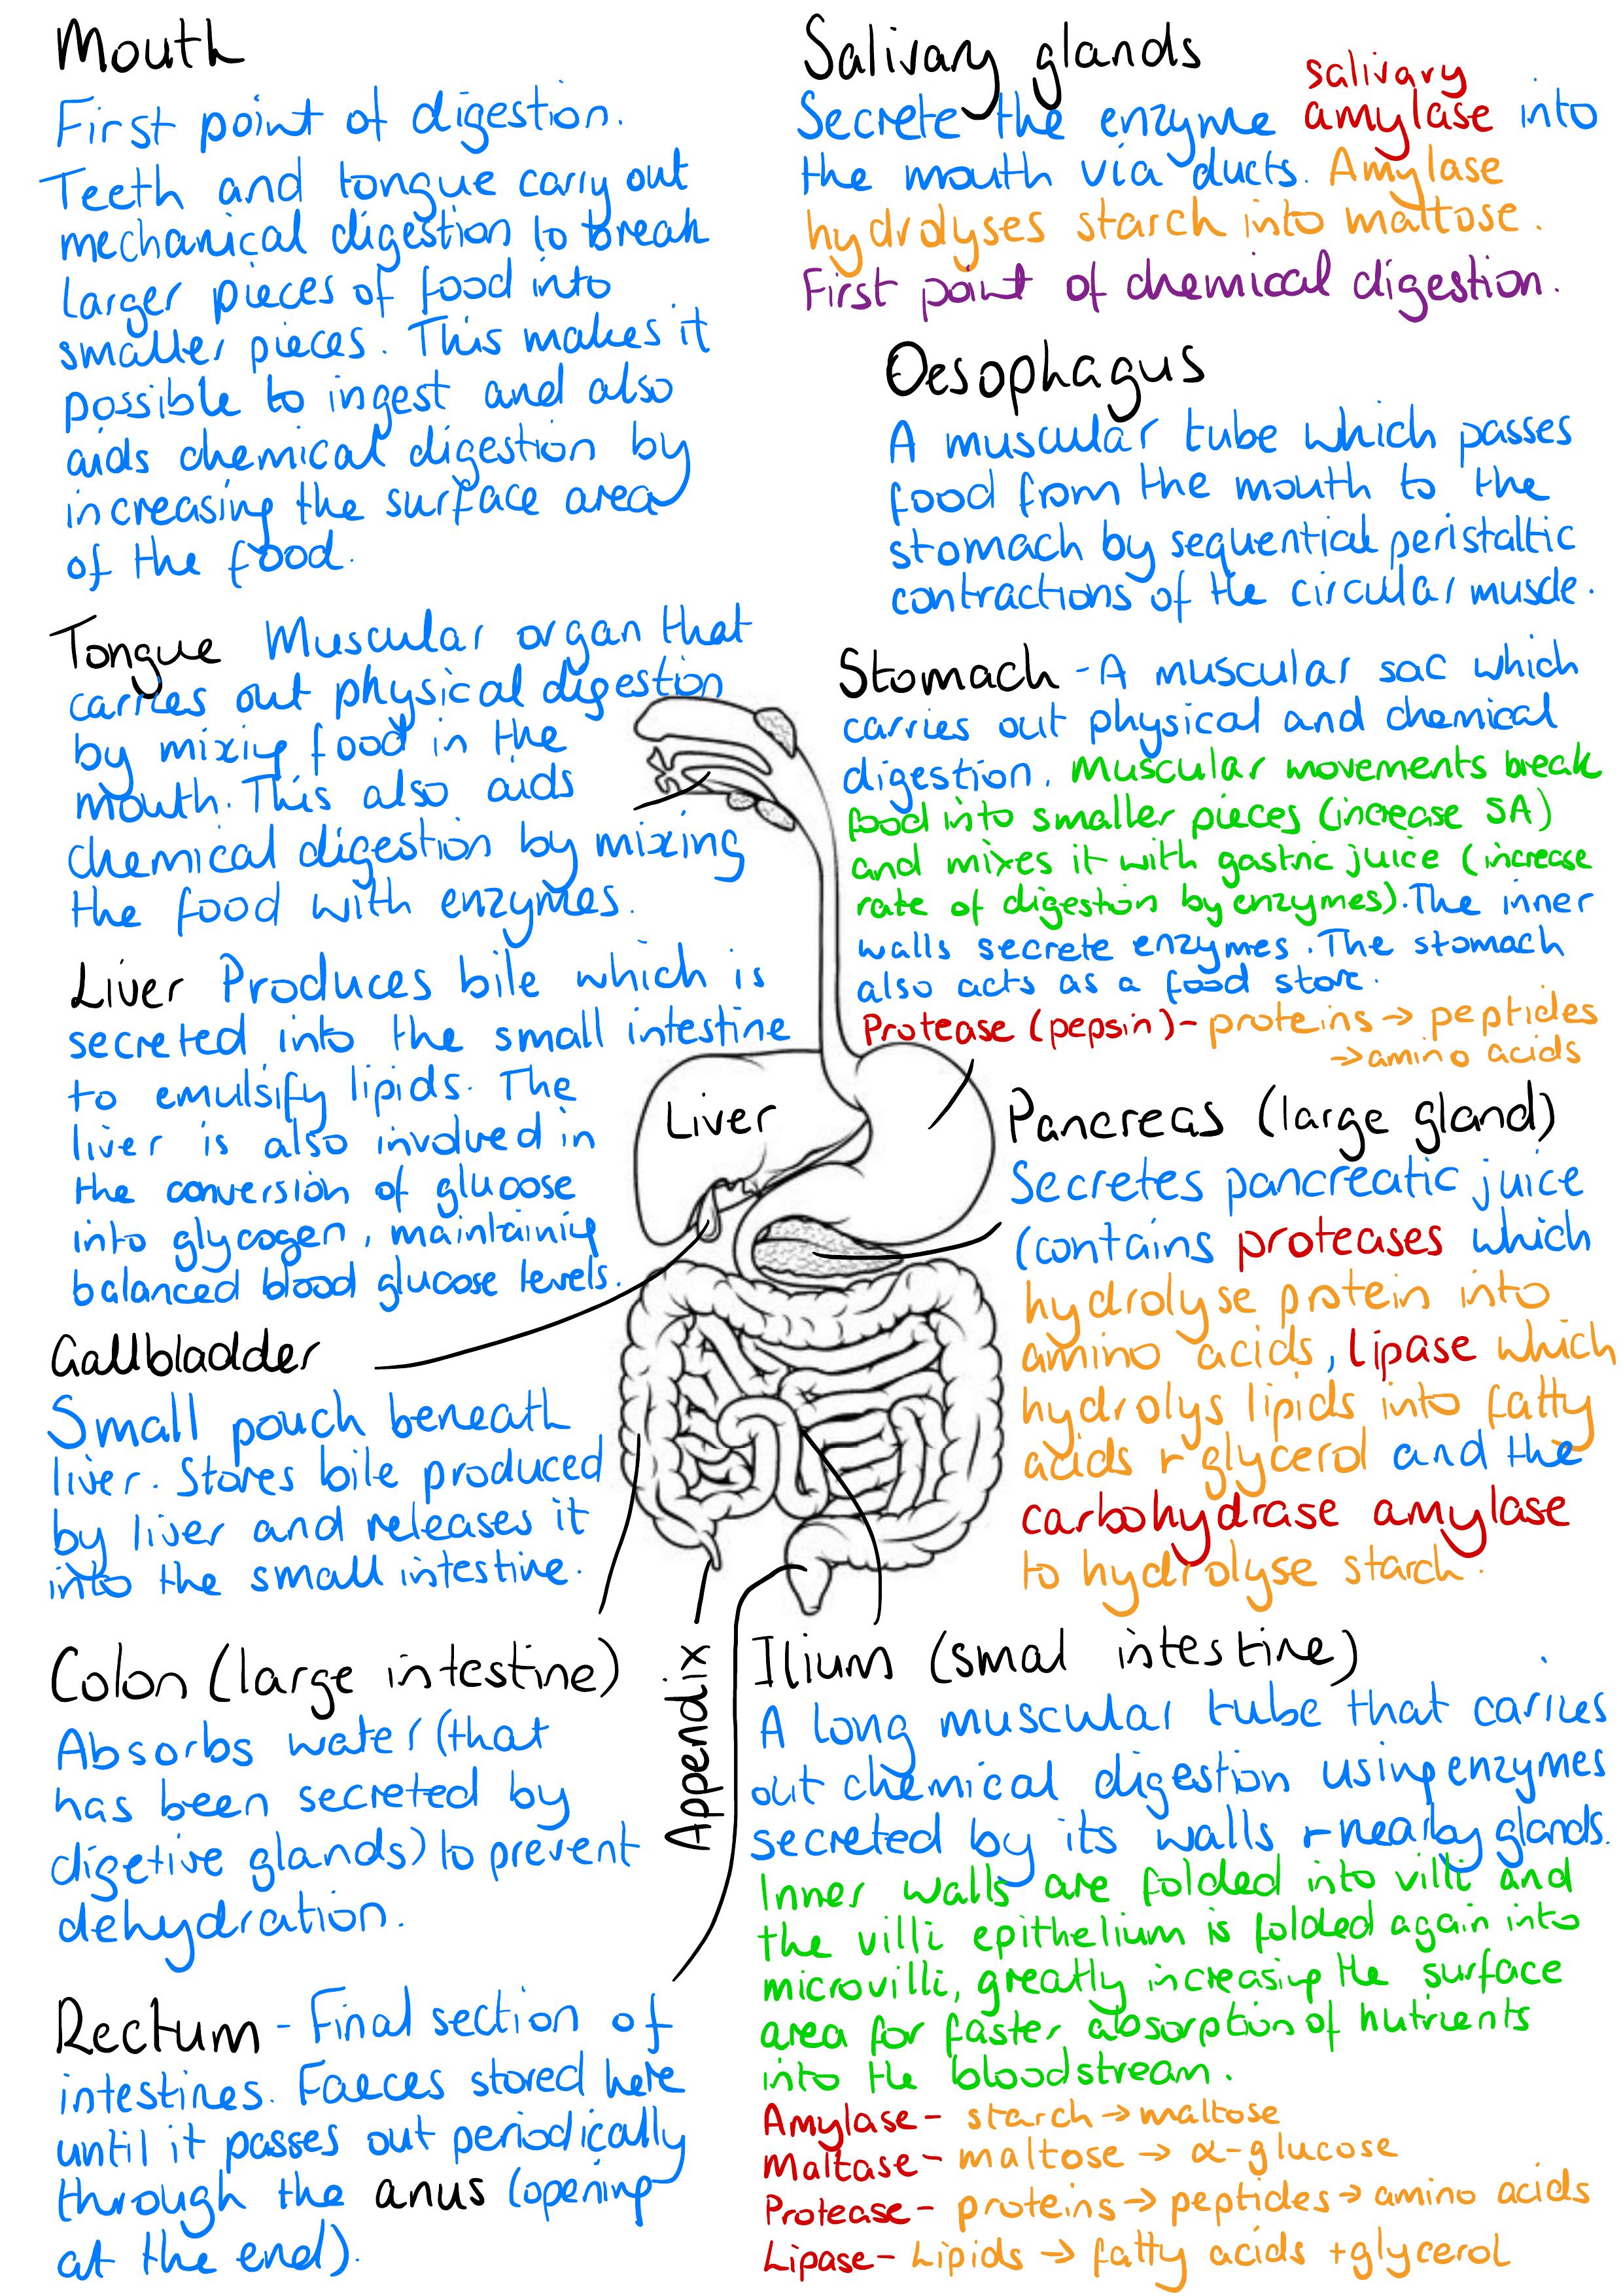 Mouth
First point of digestion.
Teeth and tongue carry out
mechanical digestion to break
larger pieces of food into
smaller pieces. This makes it
possible to ingest and also
aids chemical digestion by
increasing the surface area
of the food.
Tongue Muscular organ that
carries out physical digestion
by mixing food in the
mouth. This also aids
chemical digestion by mixing
the food with enzymes.
Liver Produces bile which is
secreted into the small intestine
to emulsify lipids. The
liver is also involved in
the conversion of glucose
into glycogen, maintaining
balanced blood glucose levels.
Gallbladder
Small pouch beneath
liver. Stores bile produced
by liver and releases it
into the small intestine.
Colon (large intestine)
Absorbs water (that
has been secreted by
digetive glands) to prevent
dehydration.
Rectum - Final section of
intestines. Faeces stored here
until it passes out periodically
through the anus (opening
at the end).
Liver
Appendix
Salivary glands
salivary
Secrete the enzyme amylase into
the mouth via ducts. Amylase
hydrolyses starch into maltose.
First point of chemical digestion.
Oesophagus
A muscular tube which passes
food from the mouth to the
stomach by sequential peristaltic
contractions of the circular muscle.
Stomach - A muscular sac which
carries out physical and chemical
digestion. Muscular movements break
food into smaller pieces (increase SA)
and mixes it with gastric juice (increase
rate of digestion by enzymes). The inner
walls secrete enzymes. The stomach
also acts as a food store.
Protease (pepsin) - proteins → peptides
→ amino acids
Pancreas (large gland)
Secretes pancreatic juice
(contains proteases which
hydrolyse protein into
amino acids, lipase which
hydrolys lipids into fatty
acids + glycerol and the
carbohydrase amylase
to hydrolyse starch.
Ilium (smal intestine)
A long muscular tube that carries
out chemical digestion using enzymes
secreted by its walls + nearby glands.
Inner walls are folded into villi and
the villi epithelium is folded again into
microvilli, greatly increasing the surface
area for faster absorption of nutrients
into the bloodstream.
Amylase - starch → maltose
Maltase - maltose → α-glucose
Protease - proteins → peptides → amino acids
Lipase - Lipids → fatty acids + glycerol